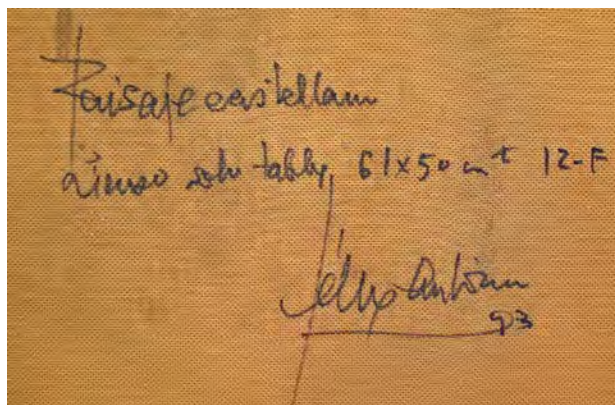 Paisaje castellano
Lienzo sobre tabla, 61x50 cm 12-F
Félix Antonio
93